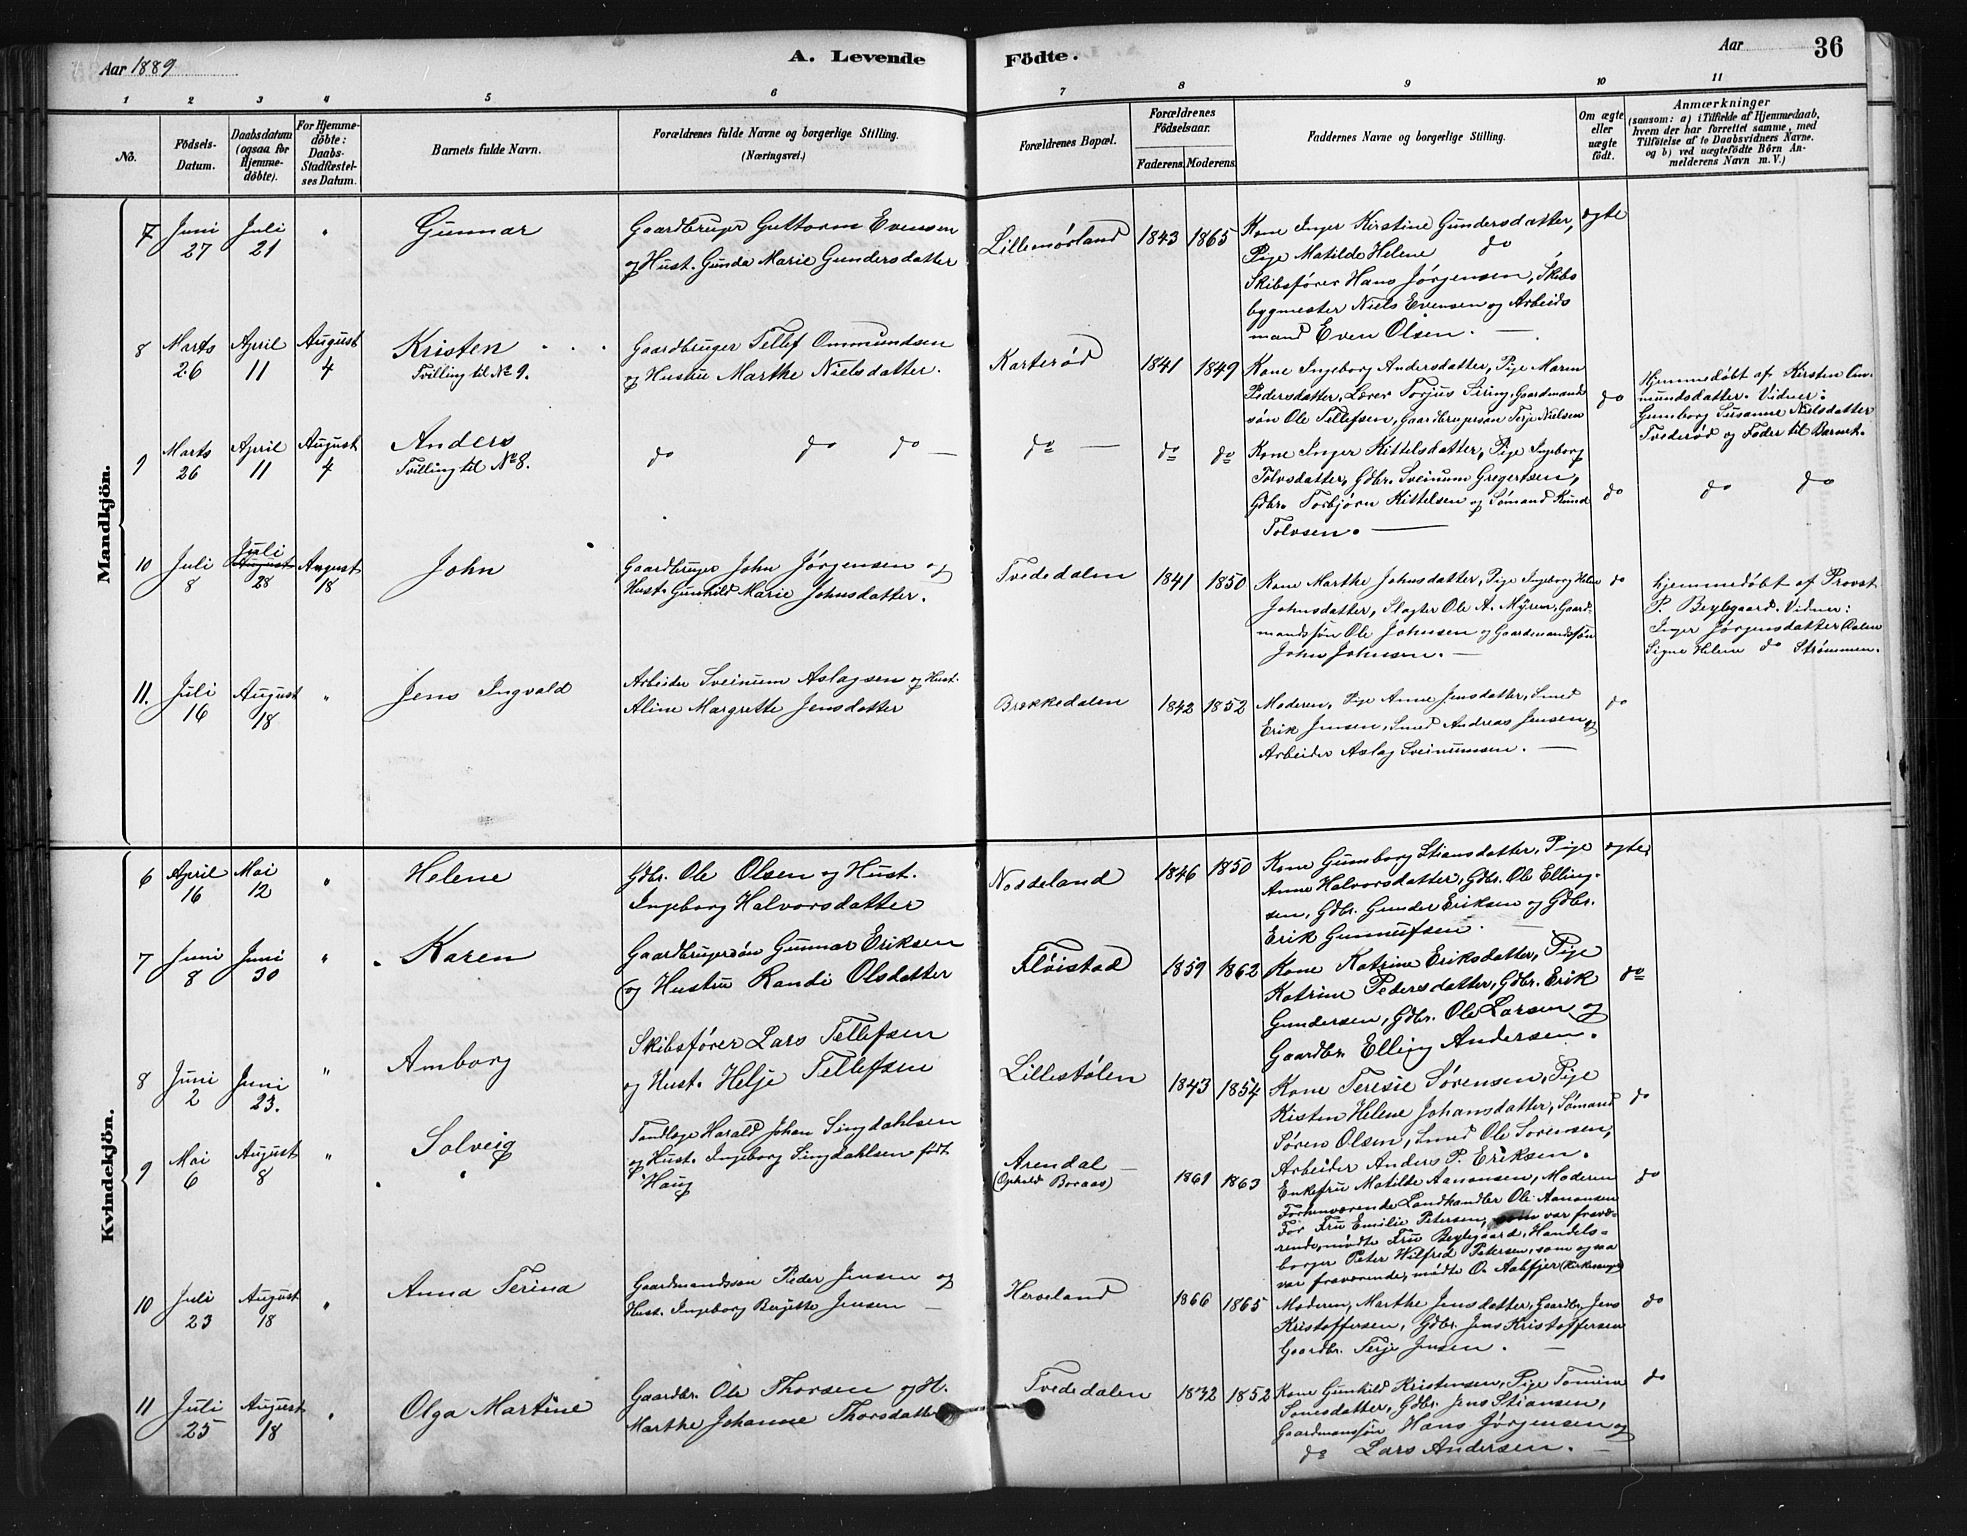 Aar 1889
A. Levende
Födte.
Aar
36
1 2 3 4 5 6 7 8 9 10 11
No.
Födsels-
Datum.
Daabsdatum
(ogsaa for
Hjemme-
döbte).
For Hjemme-
döbte:
Daabs-
Stadfæstel-
ses Datum.
Barnets fulde Navn.
Forældrenes fulde Navne og borgerlige Stilling.
(Næringsvei.)
Forældrenes Bopæl.
Forældrenes
Födselsaar.
Faderens. Moderens.
Faddernes Navne og borgerlige Stilling.
Om ægte
eller
uægte
födt.
Anmærkninger
(saasom: a) i Tilfælde af Hjemmedaab,
hvem der har forrettet samme, med
Tilföielse af to Daabsvidners Navne.
og b) ved uægtefödte Börn An-
melderens Navn m. V.)
Mandkjön.
7
Juni
27
Juli
21
"
Gunnar
Gaardbruger Guttorm Evensen
og Hust. Gunda Marie Gundersdatter
Lillemörland
1843 1865
Kone Inger Kirstine Gundersdatter,
Pige Matilde Helene do
Skibsfører Hans Jørgensen, Skibs
bygmester Niels Evensen og Arbeids
mand Even Olsen.
ægte
8
Marts
26
April
11
August
4
Kristen
Tvilling til No 9.
Gaardbruger Tellef Ommundsen
og Hustru Marthe Nielsdatter.
Karterød
1841 1849
Kone Ingeborg Andersdatter, Pige Maren
Pedersdatter, Lærer Torjus Siring, Gaardmand
søn Ole Tellefsen, Gaardbrugersøn Terje Nielsen
do
Hjemmedøbt af Kirsten Om-
mundsdatter. Vidner:
Gunborg Susanne Nielsdatter
Tvederød og Fader til Barnet.
9
Marts
26
April
11
August
4
Anders
Tvilling til No 8.
do do do
do
do do
Kone Inger Kittelsdatter, Pige Ingeborg
Tolvsdatter, Gdbr. Sveinum Gregertsen,
Gdbr. Torbjørn Kittelsen og Sømand Knud
Tolvsen.
do
do do
10
Juli
8
Juli
August
28
August
18
John
Gaardbruger John Jörgensen og
Hust. Gunhild Marie Johnsdatter.
Tvededalen
1841 1850
Kone Marthe Johnsdatter, Pige Ingeborg Helene
Johnsdatter, Slagter Ole A. Myren, Gaard-
mandssøn Ole Johnsen og Gaardmandssøn
John Johnsen.
do
Hjemmedøbt af Provst
P. Beylegaard. Vidner:
Inger Jørgensdatter Dalen
Signe Helene do Strømmen.
11.
Juli
16
August
18
"
Jens Ingvald
Arbeider Sveinum Aslagsen og Hust.
Aline Margrette Jensdatter
Brekkedalen
1842 1852
Moderen, Pige Anne Jensdatter, Smed
Erik Jensen, Smed Andreas Jensen og
Arbeider Aslag Sveinumsen.
do
Kvindekjön.
6
April
16
Mai
12
"
Helene
Gdbr. Ole Olsen og Hust.
Ingeborg Halvorsdatter
Noddeland
1846 1850
Kone Gunsborg Stiansdatter, Pige
Anne Halvorsdatter, Gdbr. Ole Elling-
sen, Gdbr. Gunder Eriksen og Gdbr.
Erik Gunnufsen.
ægte
7
Juni
8
Juni
30
"
Karen
Gaardbrugersøn Gunnar Eriksen
og Hustru Randi Olsdatter
Fløistad
1859 1862
Kone Katrine Eriksdatter, Pige
Katrine Pedersdatter, Gdbr. Erik
Gundersen, Gdbr. Ole Larsen og
Gaardbr. Elling Andersen.
do
8
Juni
2
Juni
23.
"
Amborg
Skibsfører Lars Tellefsen
og Hust. Helje Tellefsen
Lillestølen
1843 1854
Kone Teresie Sørensen, Pige
Kisten Helene Johansdatter, Sømand
Søren Olsen, Smed Ole Sørensen,
Arbeider Anders P. Eriksen.
do
9
Mai
6
August
8
"
Solveig
Tandlæge Harald Johan Singdahlsen
og Hust. Ingeborg Singdahlsen født
Haug
Arendal
(Ophold Boraas)
1861 1863
Enkefru Matilde Aanonsen, Moderen
Forhenværende Landhandler Ole Aanonsen
For Fru Emilie Petersen, som var fravæ-
rende, mødte Fru Beylegaard, Handels-
borger Peter Wilfred Petersen, som ogsaa
var fraværende, mødte O. Aabfjer (Kirkesanger)
do
10
Juli
23
August
18
"
Anna Terina
Gaardmandssøn Peder Jensen og
Hust. Ingeborg Berjitte Jensen
Herveland
1866 1865
Moderen, Marthe Jensdatter, Gaardbr. Jens
Kristoffersen, Gdbr. Jens Kristoffersen
Gaardbr. Terje Jensen.
do
11
Juli
25
August
18
"
Olga Martine
Gaardbr. Ole Thorsen og H.
Marthe Johanne Thorsdatter
Tvededalen
1832 1852
Kone Gunhild Kristensen, Pige Tomine
Tonesdatter, Gdbr. Jens Stiansen,
Gaardmanssøn Hans Jørgensen og
do Lars Andersen.
do